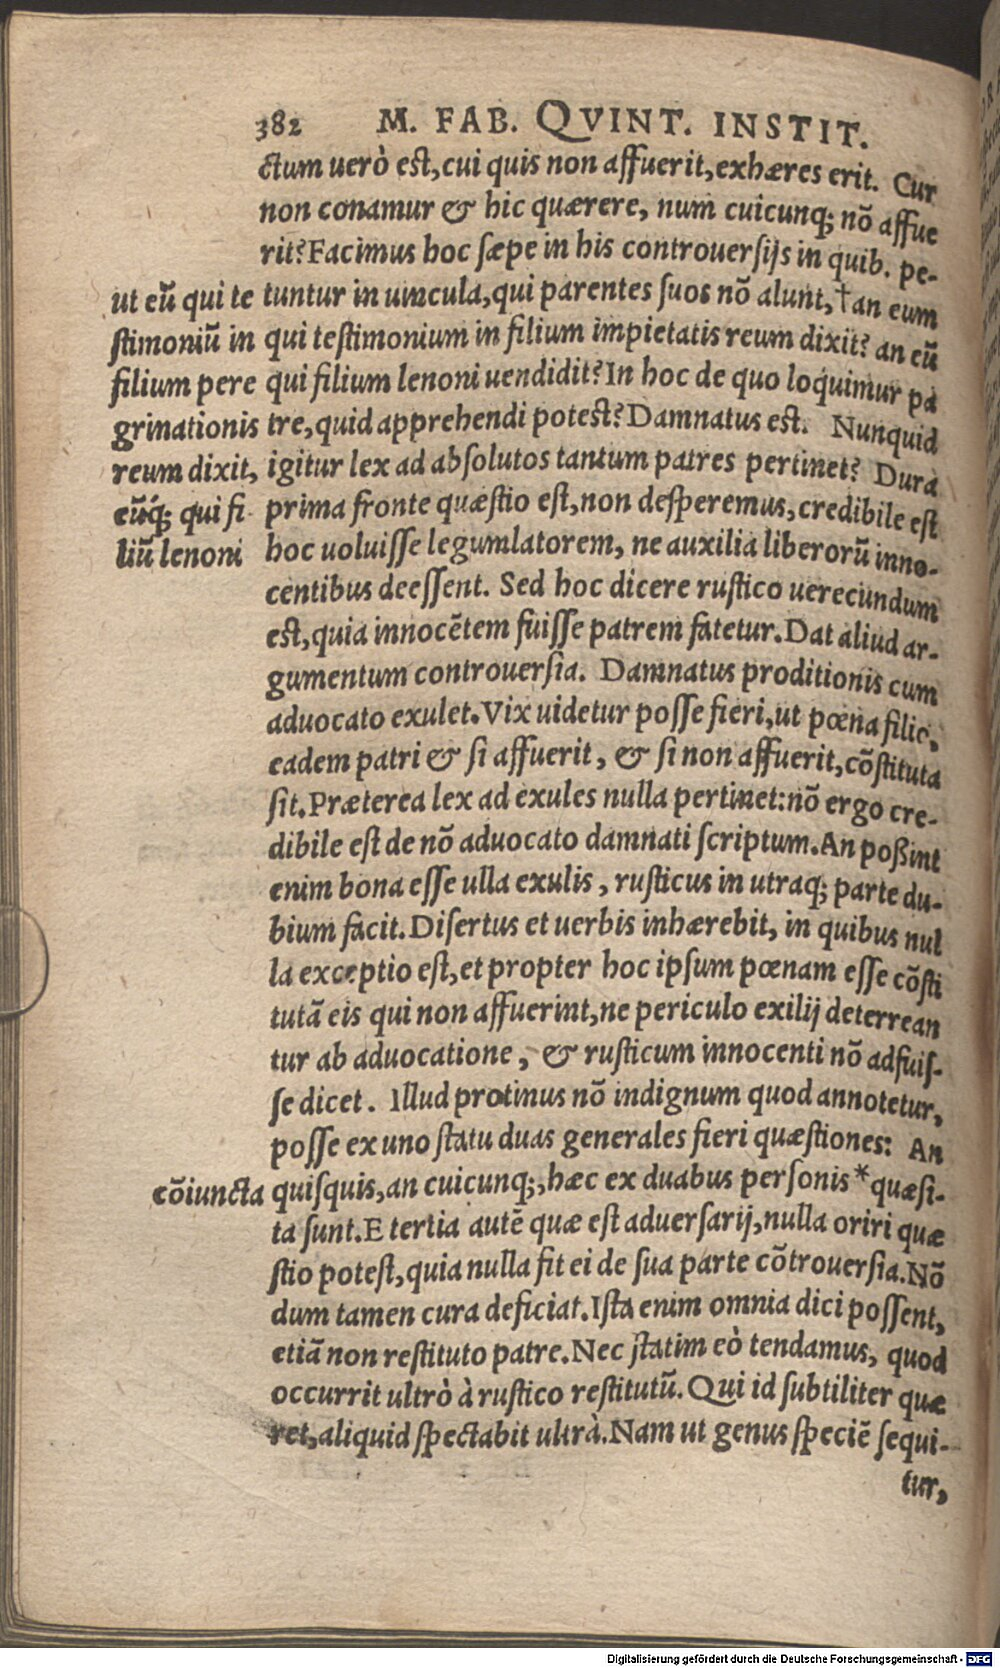 382 M. FAB. QVINT. INSTIT.
ctum uerò est, cui quis non affuerit, exhæres erit. Cur
non conamur & hic quærere, num cuicunq; nō affue
rit? Facimus hoc sæpe in his controuersijs in quib. pe-
tuntur in uincula, qui parentes suos nō alunt, † an eum
qui testimonium in filium impietatis reum dixit? an eū
qui filium lenoni uendidit? In hoc de quo loquimur pa
tre, quid apprehendi potest? Damnatus est. Nunquid
igitur lex ad absolutos tantum patres pertinet? Dura
prima fronte quæstio est, non desperemus, credibile est
hoc uoluisse legumlatorem, ne auxilia liberorū inno-
centibus deessent. Sed hoc dicere rustico uerecundum
est, quia innocētem fuisse patrem fatetur. Dat aliud ar-
gumentum controuersia. Damnatus proditionis cum
aduocato exulet. Vix uidetur posse fieri, ut pœna filio,
eadem patri & si affuerit, & si non affuerit, cōstituta
sit. Præterea lex ad exules nulla pertinet: nō ergo cre-
dibile est de nō aduocato damnati scriptum. An poßint
enim bona esse ulla exulis, rusticus in utraq; parte du-
bium facit. Disertus et uerbis inhærebit, in quibus nul
la exceptio est, et propter hoc ipsum pœnam esse cōsti
tutā eis qui non affuerint, ne periculo exilij deterrean
tur ab aduocatione, & rusticum innocenti nō adfuis-
se dicet. Illud protinus nō indignum quod annotetur,
posse ex uno statu duas generales fieri quæstiones: An
quisquis, an cuicunq;, hæc ex duabus personis * quæsi-
ta sunt. E tertia autē quæ est aduersarij, nulla oriri quæ
stio potest, quia nulla fit ei de sua parte cōtrouersia. Nō
dum tamen cura deficiat. Ista enim omnia dici possent,
etiā non restituto patre. Nec statim eò tendamus, quod
occurrit ultrò à rustico restitutū. Qui id subtiliter quæ
ret, aliquid spectabit ultrà. Nam ut genus speciē sequi-
tur,
ut eū qui te
stimoniū in
filium pere
grinationis
reum dixit,
eūq́; qui fi
liū lenoni
cōiuncta
Digitalisierung gefördert durch die Deutsche Forschungsgemeinschaft - DFG